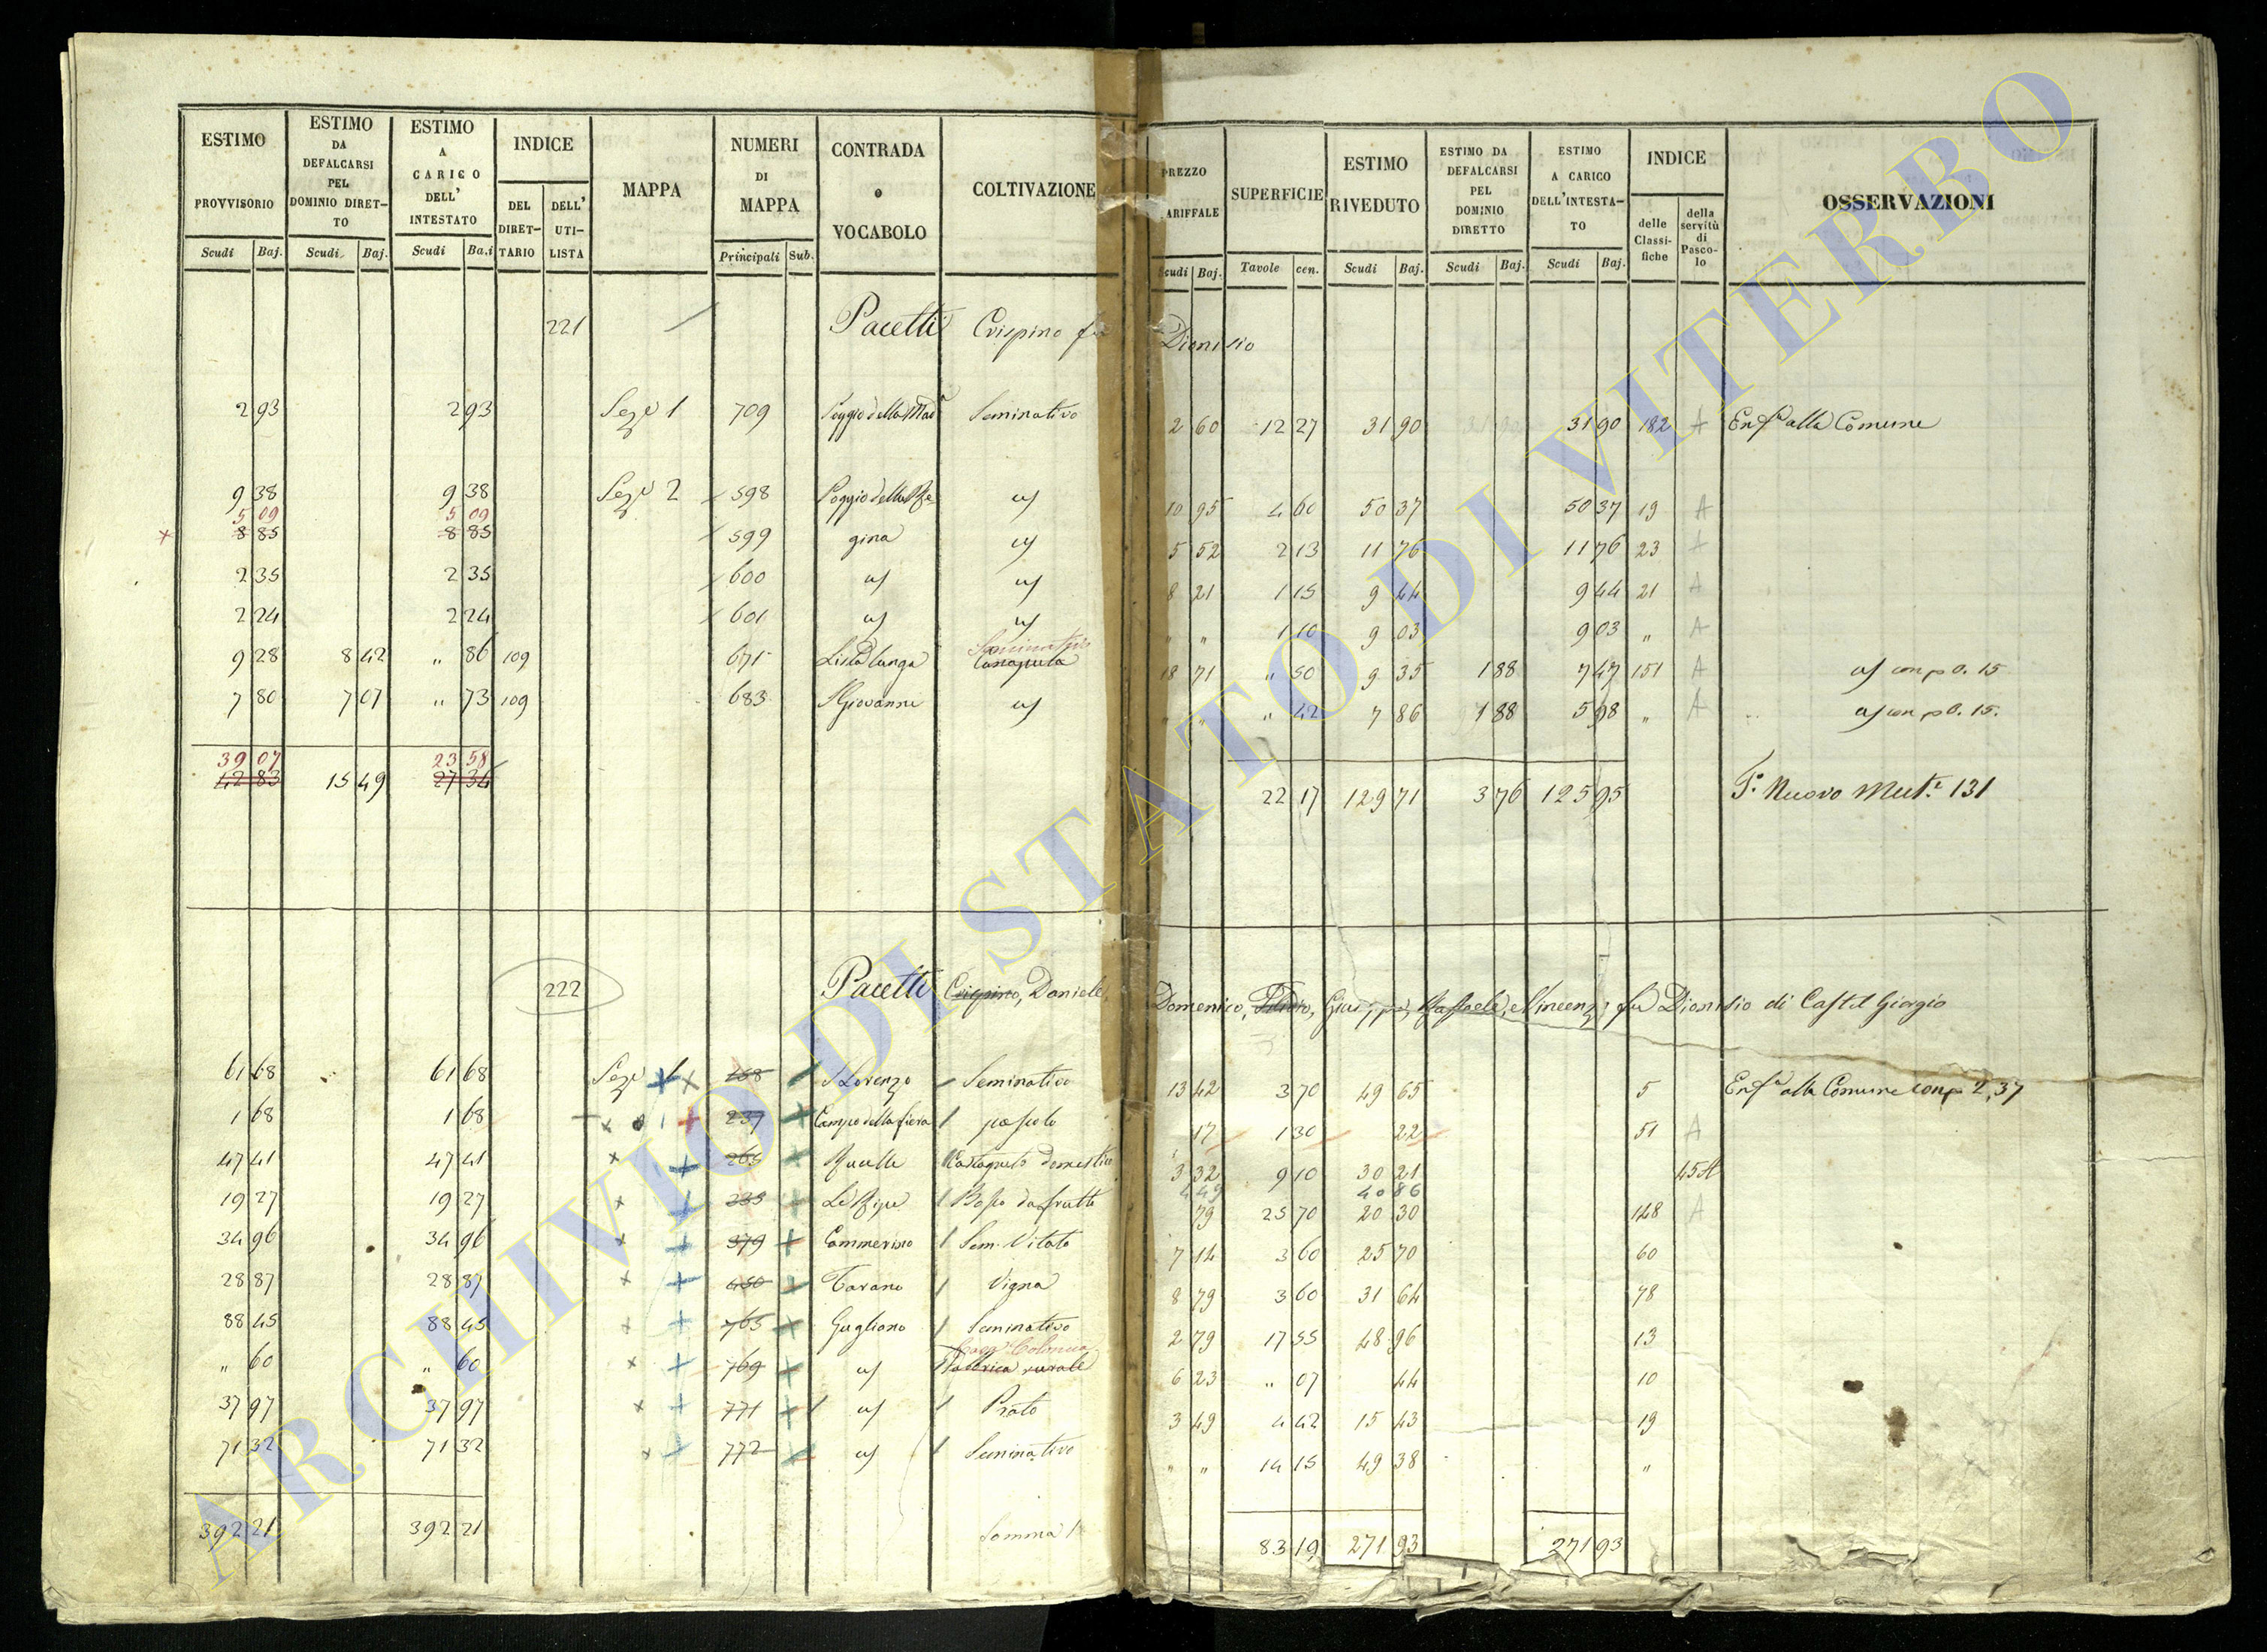 ESTIMO PROVVISORIO | ESTIMO DA DEFALCARSI PEL DOMINIO DIRETTO | ESTIMO A CARICO DELL' INTESTATO | INDICE | MAPPA | NUMERI DI MAPPA | CONTRADA o VOCABOLO | COLTIVAZIONE | PREZZO TARIFFALE | SUPERFICIE | ESTIMO RIVEDUTO | ESTIMO DA DEFALCARSI PEL DOMINIO DIRETTO | ESTIMO A CARICO DELL'INTESTATO | INDICE | OSSERVAZIONI
Scudi Baj. | Scudi Baj. | Scudi Baj. | DEL DIRETTARIO | DELL' UTILISTA | Principali Sub. | Scudi Baj. | Tavole cen. | Scudi Baj. | Scudi Baj. | Scudi Baj. | delle Classifiche | della servitù di Pascolo
221 Pacetti Crispino fu Dionisio
2 93 2 93 Sezne 1 709 Poggio della Mad Seminativo 2 60 12 27 31 90 31 90 182 A Enfa alla Comune
9 38 9 38 Sezne 2 598 Poggio della Re- 10 95 4 60 50 37 50 37 19 A
5 09 5 09
8 85 8 85 599 gina 5 52 2 13 11 76 11 76 23 A
2 35 2 35 600 8 21 1 15 9 44 9 44 21 A
2 24 2 24 601 " " 1 10 9 03 9 03 " A
Seminativo
9 28 8 42 " 86 109 671 Lista lunga 18 71 " 50 9 35 1 88 7 47 151 A 0. 15
7 80 7 07 " 73 109 683 S Giovanni " " " 42 7 86 1 88 5 98 " A 0. 15.
39 07 23 58
42 83 15 49 27 34 22 17 129 71 3 76 125 95 F.o Nuovo Mut.e 131
222 Pacetti Crispino, Daniele, Domenico, Giuseppe, Raffaele, e Vincenzo fu Dionisio di Castel Giorgio
61 68 61 68 Sezne 1 168 S Lorenzo Seminativo 13 42 3 70 49 65 5 Enfa alla Comune 2,37
1 68 1 68 237 Campo della fiera pascolo 17 1 30 22 51 A
47 41 47 41 265 Castagneto domestico 3 32 9 10 30 21 45 A
4 49 40 86
19 27 19 27 335 Le Ripe Bosco da frutto 79 25 70 20 30 148 A
34 96 34 96 379 Cammerino Sem. Vitato 7 14 3 60 25 70 60
28 87 28 87 450 Tavano Vigna 8 79 3 60 31 64 78
88 45 88 45 765 Gugliano Seminativo 2 79 17 55 48 96 13
Casa Colonica
" 60 " 60 769 Fabbrica rurale 6 23 " 07 44 10
37 97 37 97 771 Prato 3 49 4 42 15 43 19
71 32 71 32 772 Seminativo " " 14 15 49 38 "
392 21 392 21 Somma 83 19 271 93 271 93
ARCHIVIO DI STATO DI VITERBO